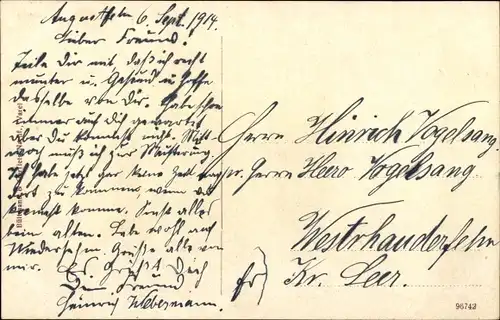 Augustfehn 6. Sept. 1914.
Lieber Freund!
Teile Dir mit, daß ich recht
munter u. Gesund u. Hoffe
dasselbe von Dir. Habe schon
immer auf dich gewartet
aber Du kommst nicht. Mitt-
woch muß ich zur Musterung
Ich habe jetzt gar keine Zeit
dort zu kommen, wenn du
kommst komme. Sonst alles
beim alten. Lebe wohl auf
Wiedersehn. Grüße alle von
mir.
Es Grüßt Dich
Dein Freund
Heinrich
Herrn Hinrich Vogelsang
pr. Herrn Heero Vogelsang
Westrhauderfehn
Kr. Leer.
96742